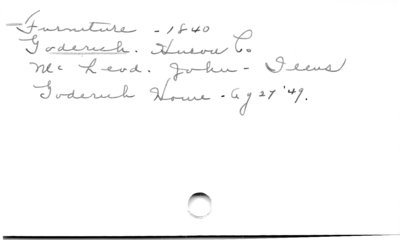 Furniture - 1840
Goderich. Huron Co
Mc Leod. John - Items
Goderich Home - Ag 27 '49.